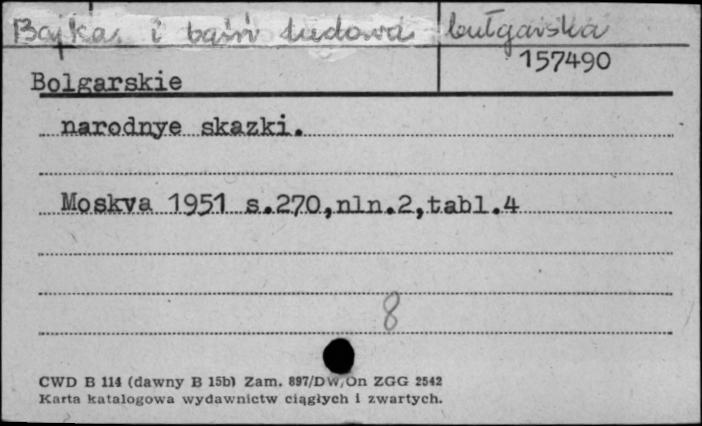 Bajka i baśń ludowa bułgarska
157490
Bolgarskie
narodnye skazki.
Moskva 1951 s.270,nln.2,tabl.4
8
CWD B 114 (dawny B 15b) Zam. 897/DW/On ZGG 2542
Karta katalogowa wydawnictw ciągłych i zwartych.